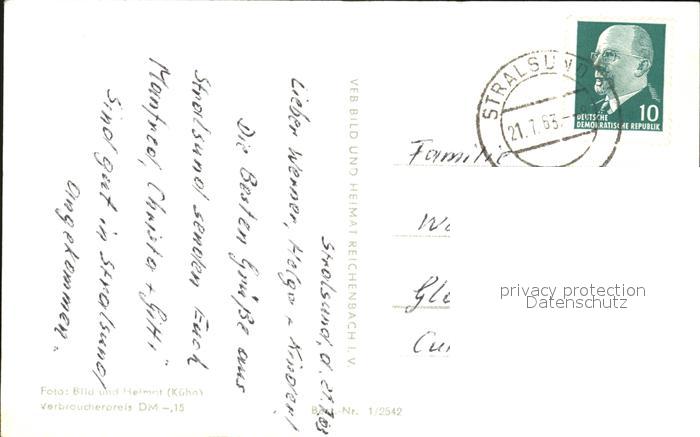 Stralsund, d. 21.7.63
Lieber Werner, Helga + Kinder!
Die Besten Grüße aus
Stralsund senden Euch
Manfred, Christa + Gitti
Sind gut in Stralsund
angekommen.
VEB BILD UND HEIMAT REICHENBACH I. V.
STRALSUND
21.7.63.
10
DEUTSCHE
DEMOKRATISCHE REPUBLIK
Familie
privacy protection
Datenschutz
Foto: Bild und Heimat (Kühn)
Verbraucherpreis DM -,15
Best.-Nr. 1/2542